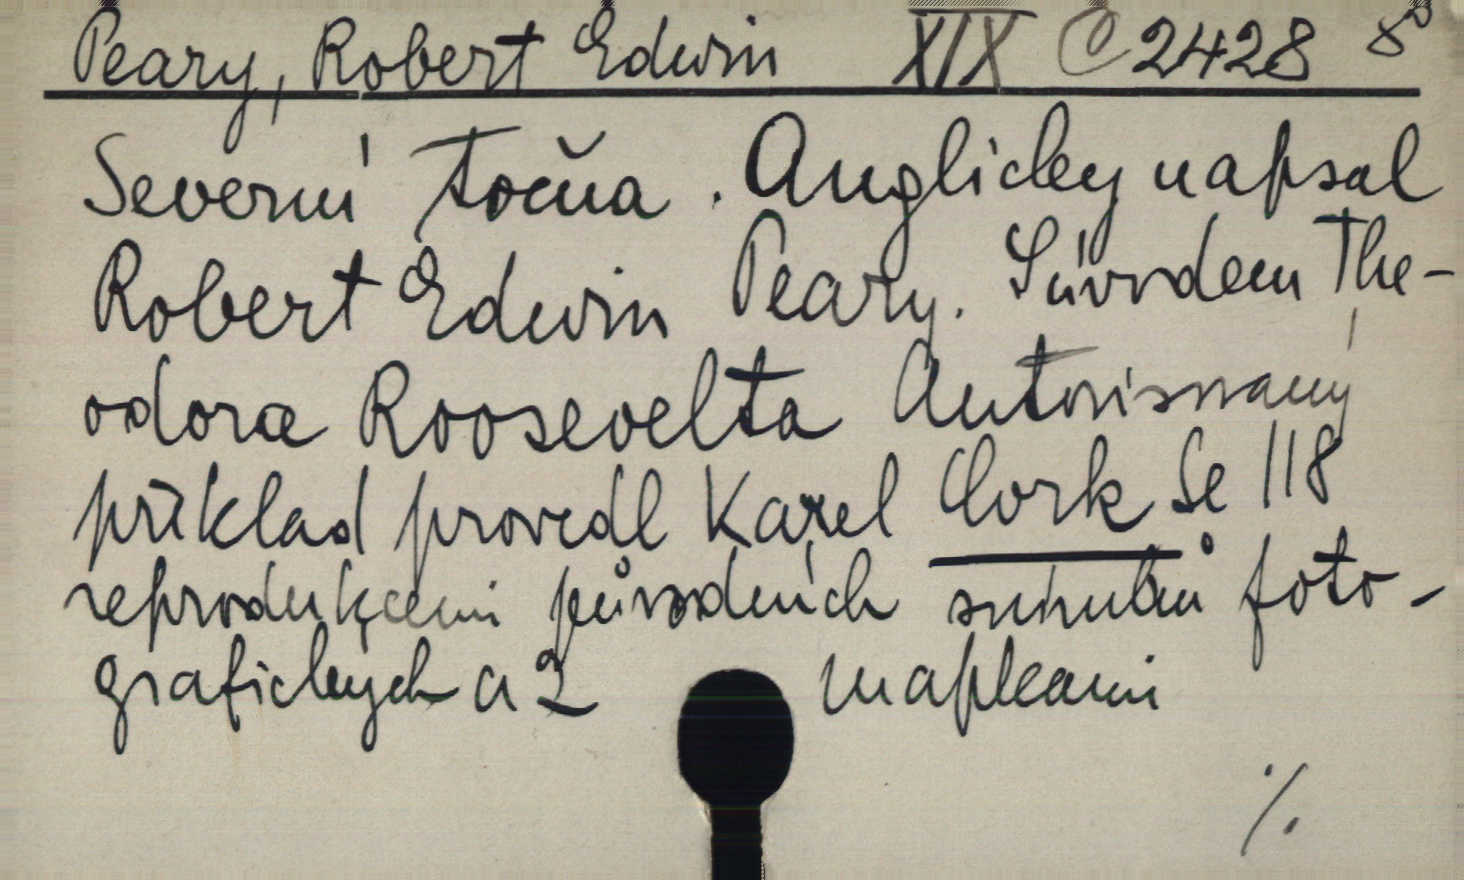 Peary, Robert Edwin XIX C 2428 8°
Severní točna. Anglicky napsal
Robert Edwin Peary. S úvodem The-
odora Roosevelta Autorisovaný
příklad provedl Karel Cork Se 118
reprodukcemi původních snímků foto-
grafických a 2 mapkami
%